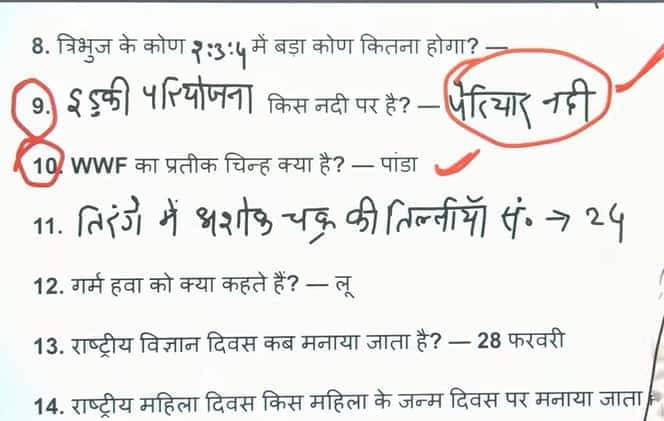 8. त्रिभुज के कोण 2:3:4 में बड़ा कोण कितना होगा? —
9. इडुकी परियोजना किस नदी पर है? — पेरियार नदी
10. WWF का प्रतीक चिन्ह क्या है? — पांडा
11. तिरंगे में अशोक चक्र की तिल्लीयाँ सं. → 24
12. गर्म हवा को क्या कहते हैं? — लू
13. राष्ट्रीय विज्ञान दिवस कब मनाया जाता है? — 28 फरवरी
14. राष्ट्रीय महिला दिवस किस महिला के जन्म दिवस पर मनाया जाता